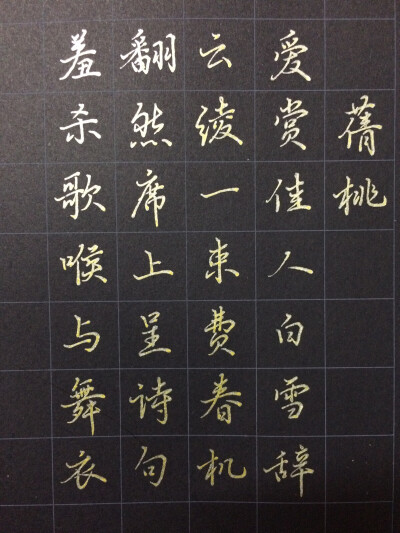 蒨桃
爱赏佳人白雪辞
云绫一束费春机
翻然席上呈诗句
羞杀歌喉与舞衣